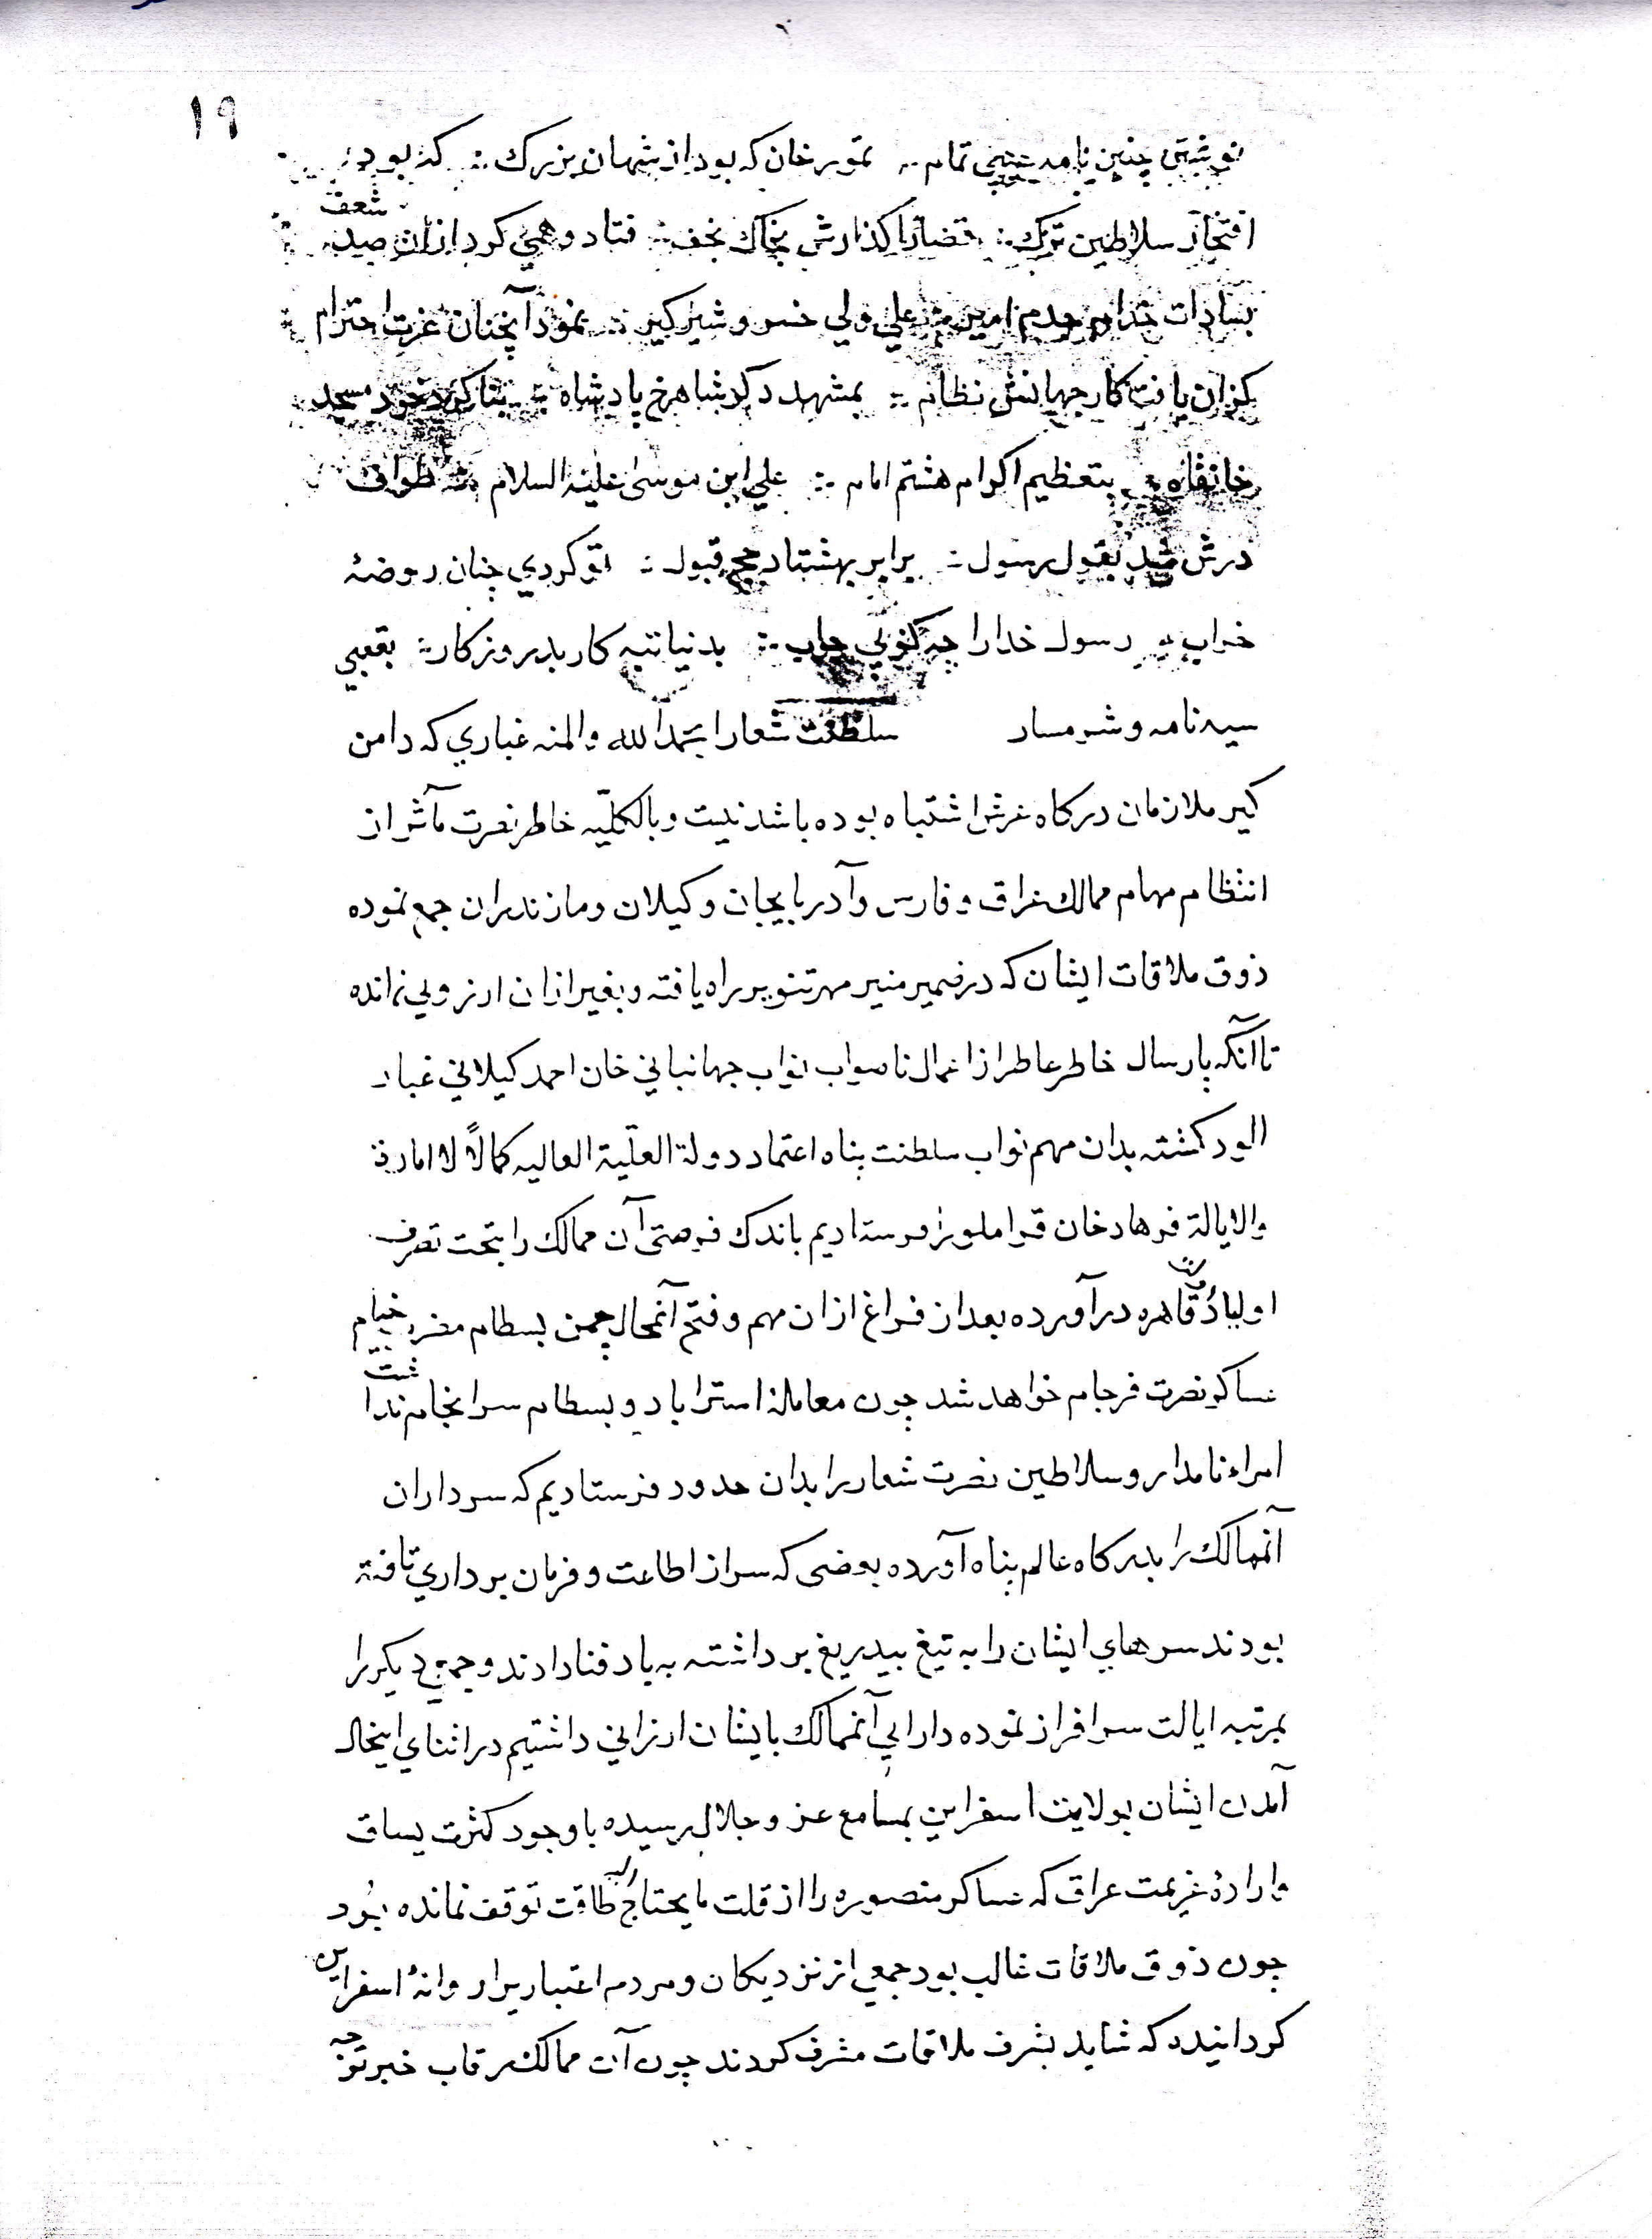 ۱۹
نوشتن چنین نامه تمام ∴ تمورخان که بود از شهان بزرك ∴ که بود
افتخار سلاطین ترك ∴ قضا را کذارش بخاك نجف ∴ فتاد و همی کرد ازان صد شعف
بسادات خدام علی ولی خسرو شیرکیر ∴ نمود آنچنان عزت احترام
کزان یافت کار جهانش نظام ∴ بمشهد دکر شاهرخ پادشاه ∴ بنا کرد خود مسجد
خانقاه ∴ بتعظیم اکرام هشتم امام ∴ علي ابن موسیٰ علیه السلام ∴ طواف
درش شد بقول رسول ∴ برابر بهشتاد حج قبول ∴ تو کردي چنان روضهٔ
خراب ∴ رسول خدا را چه کوئي جواب ∴ بدنیا تبه کار بد روزکار ∴ بعقبي
سیه نامه و شرمسار سلطنت شعارا بحمد الله والمنه غباري که دامن
کیر ملازمان درکاه عرش اشتباه بوده باشد نیست و بالکلّیه خاطر نصرت مآثر از
انتظام مهام ممالك عراق و فارس و آدربایجان و کیلان و مازندران جمع نموده
ذوق ملاقات ایشان که در ضمیر منیر مهر تنویر راه یافته و بغیر ازان ارزوئي نمانده
تا آنکه پارسال خاطر عاطر از اعمال ناصواب نواب جهانباني خان احمد کیلاني غبار
الود کشته بدان مهم نواب سلطنت پناه اعتماد دولة العلّیة العالیه کمالاً للامارة
والایالة فرهاد خان قراملو را فرستادیم باندك فرصتی آن ممالك را بتحت تصرف
اولیاء دولت قاهره درآورده بعد از فراغ ازان مهم و فتح آنمحال چمن بسطام مضرب خیام
عساکر نصرت فرجام خواهد شد چون معاملهٔ استراباد و بسطام سرانجام نداشت
امراء نامدار و سلاطین نصرت شعار را بدان حدود فرستادیم که سرداران
آنممالك را بدرکاه عالم پناه آورده بعضی که سر از اطاعت و فرمان برداري تافته
بودند سرهاي ایشان را به تیغ بیدریغ برداشته به باد فنا دادند و جمعي دیکر را
بمرتبه ایالت سرافراز نموده دارایي آنممالك بایشان ارزاني داشتیم در اثناي اینحال
آمدن ایشان بولایت اسفراین بمسامع عز و جلال رسیده با وجود کثرت یساق
و ارادهٔ عزیمت عراق که عساکر منصوره را از قلت مایحتاج الیه طاقت توقف نمانده بُود
چون ذوق ملاقات غالب بود جمعي از نزدیکان و مردم اعتباریرا روانهٔ اسفراین
کردانیدد که شاید بشرف ملاقات مشرف کردند چون آن ممالك رقاب خبر توجه